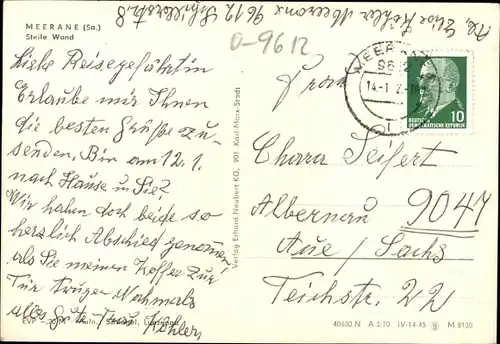 MEERANE (Sa.)
Steile Wand
Abs. Else Köhler Meerane 9612 Schillerstr. 8
O-9612
Liebe Reisegefährtin
Erlaube mir Ihnen
die besten Grüße zu-
senden. Bin am 12.1.
nach Hause u. Sie?
Wir haben doch beide so
herzlich Abschied genommen,
als Sie meinen Koffer zur
Tür trugen Nochmals
alles Gute Frau Köhler.
EVP
Verlag Erhard Neubert KG, 901 Karl-Marx-Stadt
MEERANE
9612
14-1
10
DEUTSCHE
DEMOKRATISCHE REPUBLIK
Frau
Chara Seifert
9047
Albernau
Aue / Sachs
Teichstr. 22
40600 N A 3/70 IV-14-45 M 8150